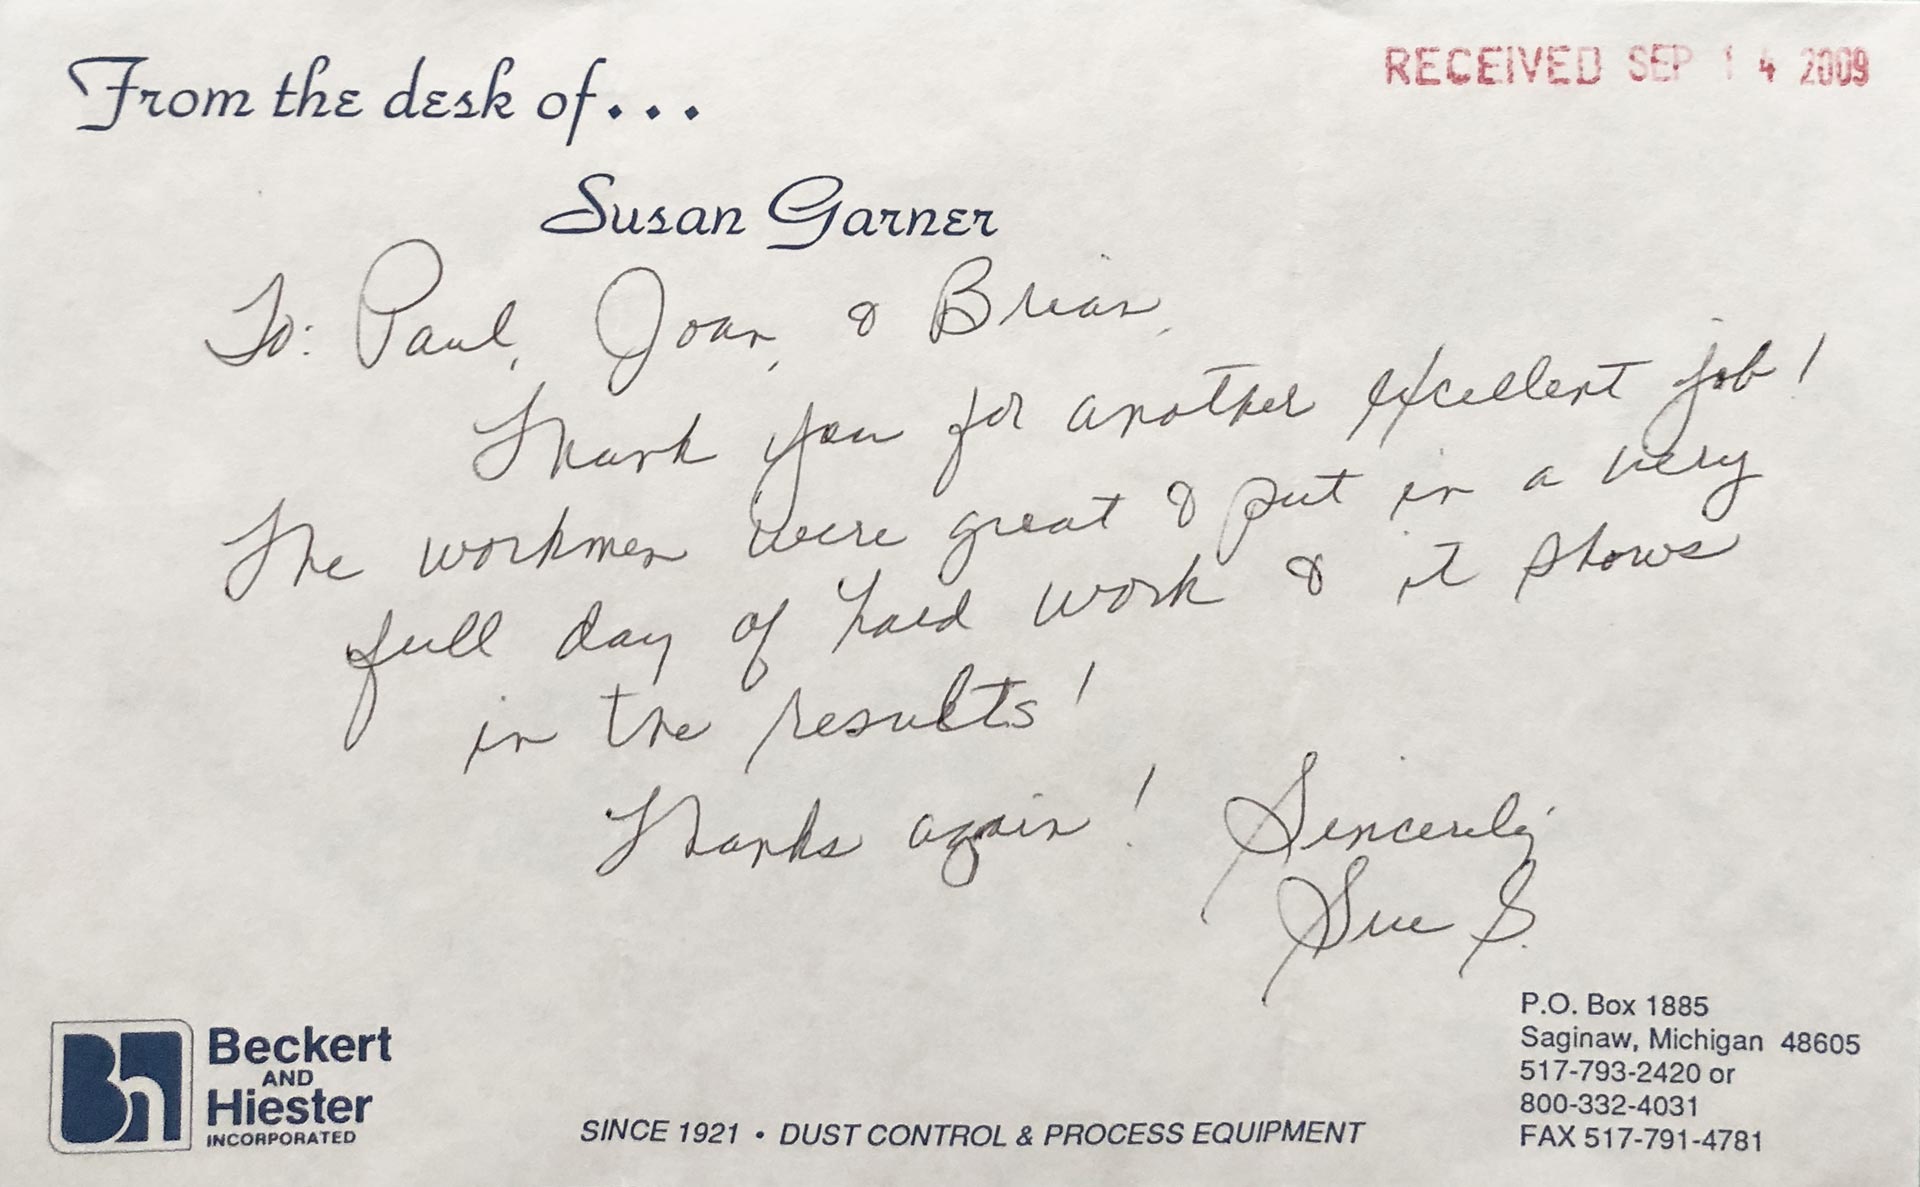 From the desk of...
RECEIVED SEP 14 2009
Susan Garner
To: Paul, Joan, & Brian,
Thank you for another excellent job!
The workmen were great & put in a very
full day of hard work & it shows
in the results!
Thanks again! Sincerely,
Sue G.
Beckert
AND
Hiester
INCORPORATED
SINCE 1921 • DUST CONTROL & PROCESS EQUIPMENT
P.O. Box 1885
Saginaw, Michigan 48605
517-793-2420 or
800-332-4031
FAX 517-791-4781